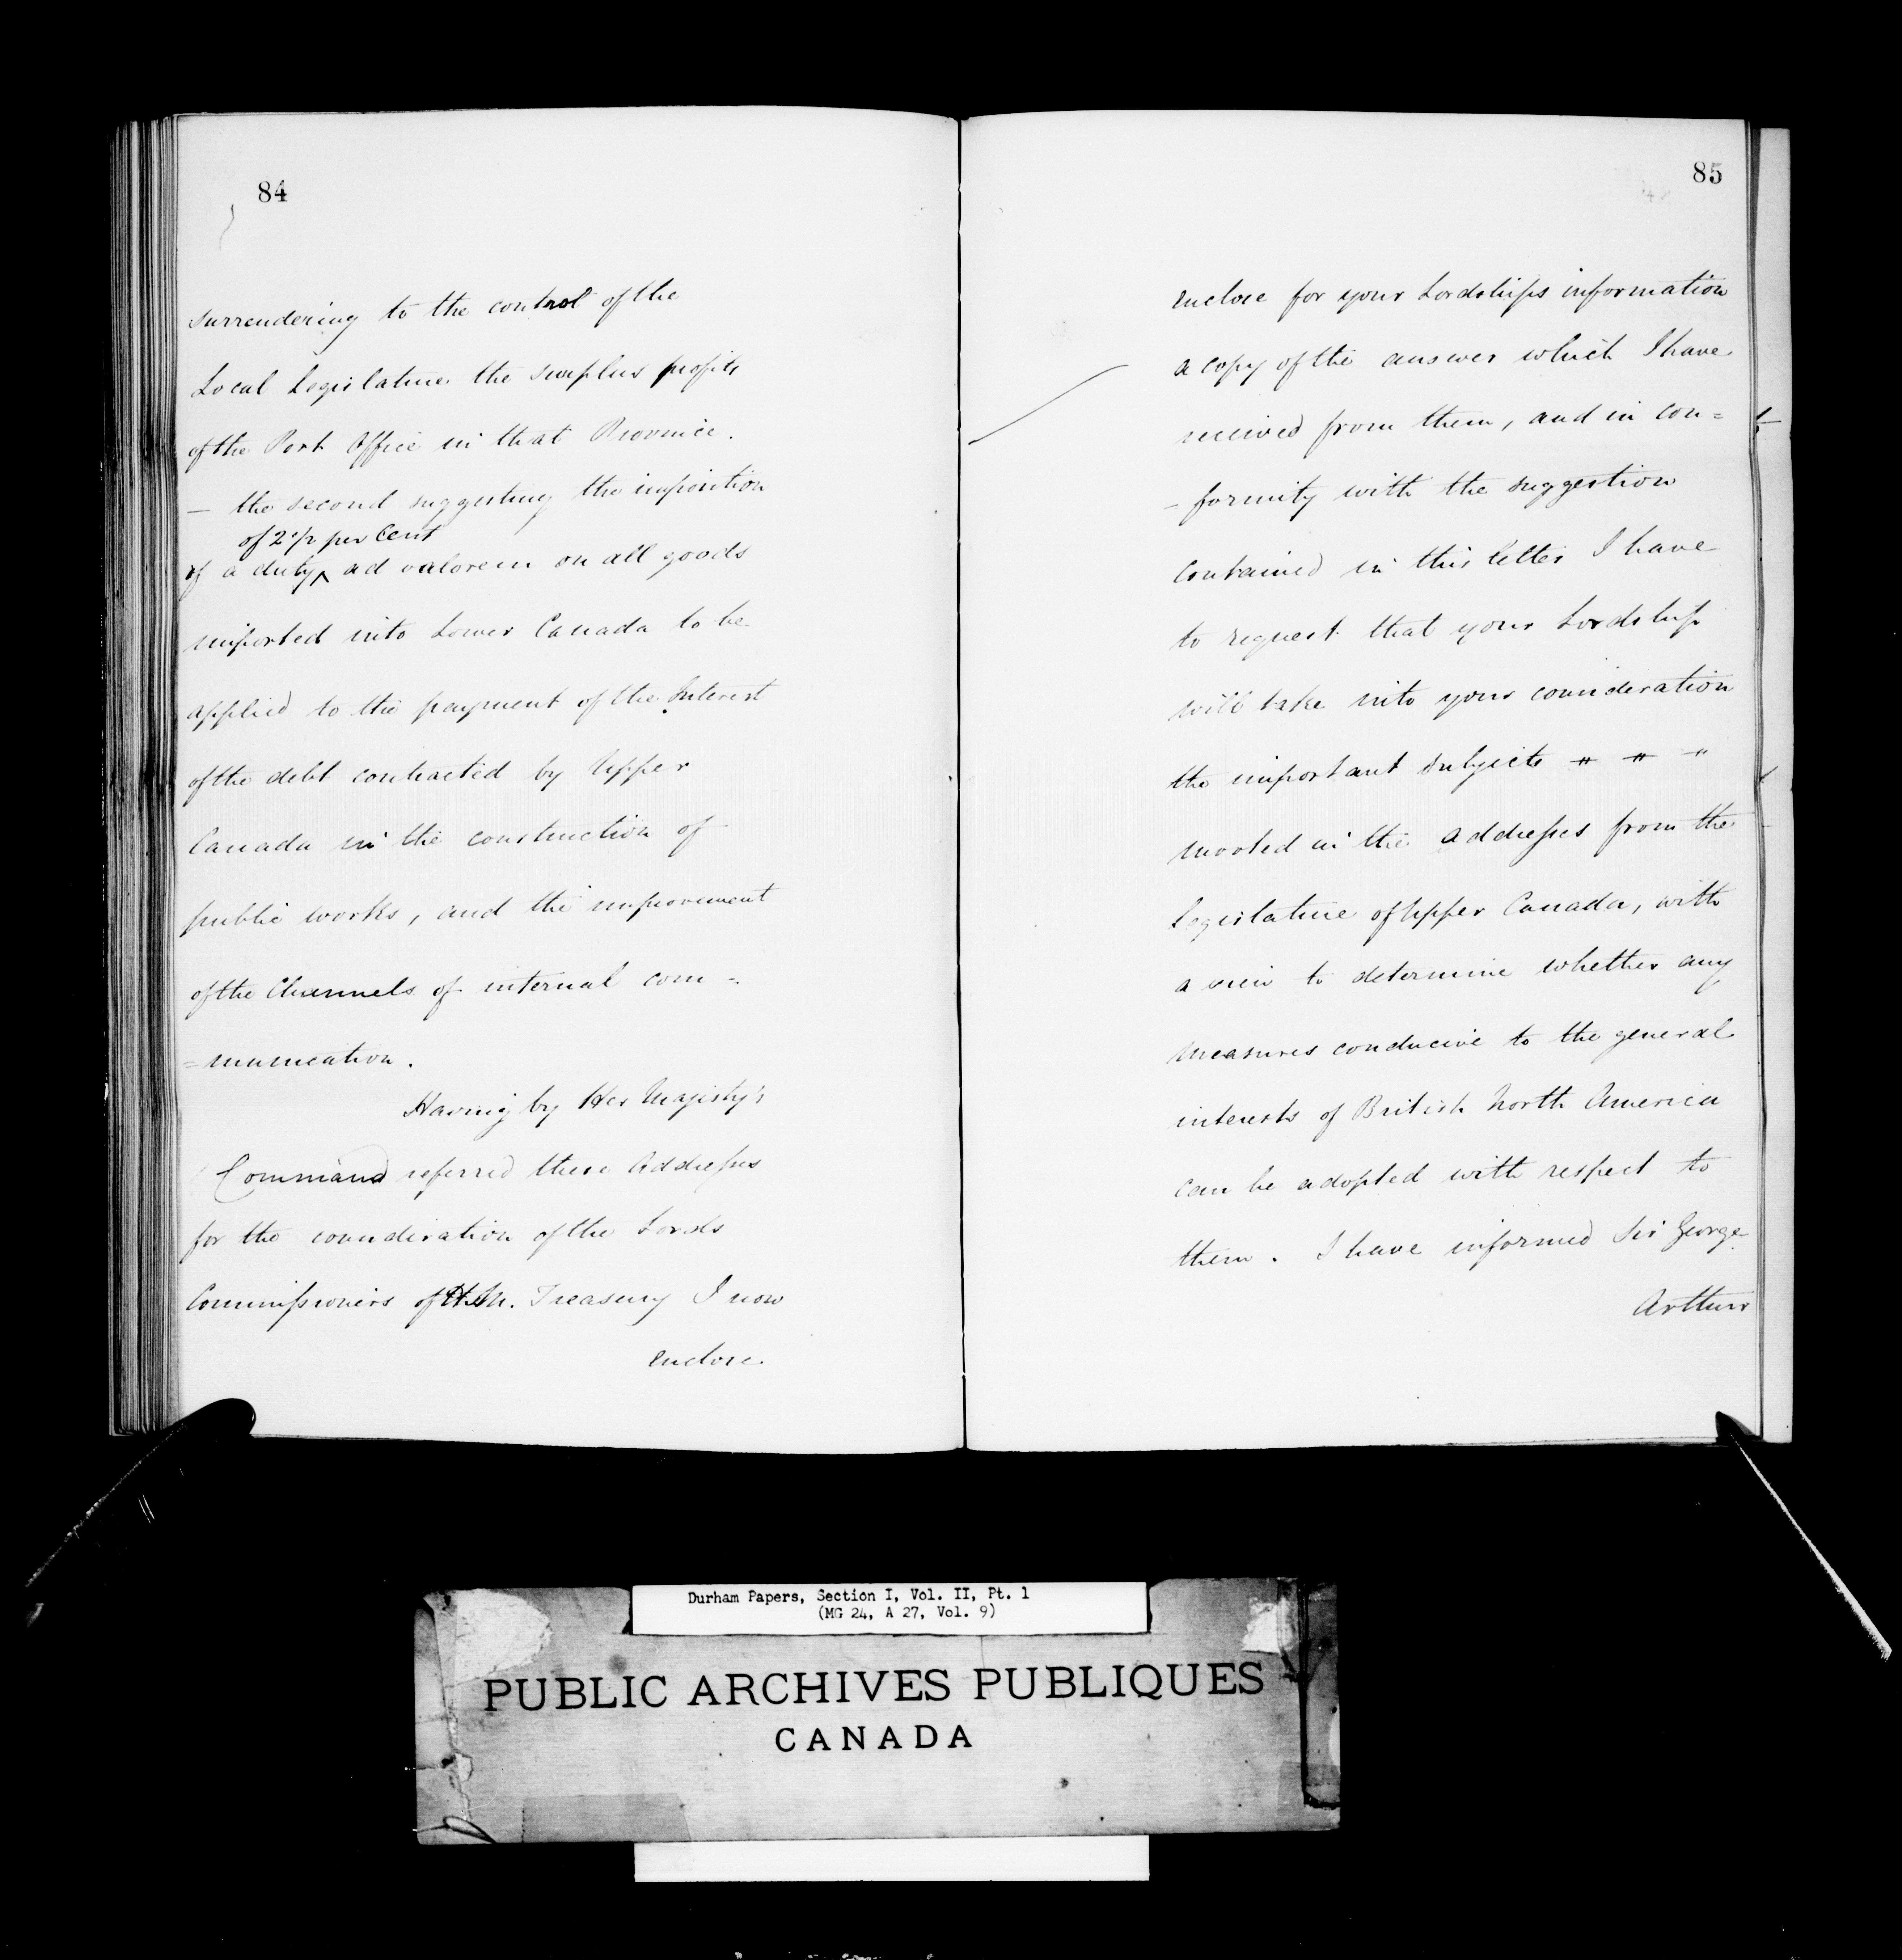 84
surrendering to the control of the
Local Legislature the surplus profits
of the Post Office in that Province.
— the second suggesting the imposition
of 2 1/2 per Cent
of a duty ^ ad valorem on all goods
imported into Lower Canada to be
applied to the payment of the Interest
of the debt contracted by Upper
Canada in the construction of
public works, and the improvement
of the Channels of internal com =
= munication.
Having by Her Majesty's
Command referred these Addresses
for the consideration of the Lords
Commissioners of H.M. Treasury I now
enclose
85
enclose for your Lordships information
a copy of the answer which I have
received from them, and in con =
- formity with the suggestion
contained in this letter I have
to request that your Lordship
will take into your consideration
the important subjects
mooted in the addresses from the
Legislature of Upper Canada, with
a view to determine whether any
measures conducive to the general
interests of British North America
can be adopted with respect to
them. I have informed Sir George
Arthur
Durham Papers, Section I, Vol. II, Pt. 1
(MG 24, A 27, Vol. 9)
PUBLIC ARCHIVES PUBLIQUES
CANADA